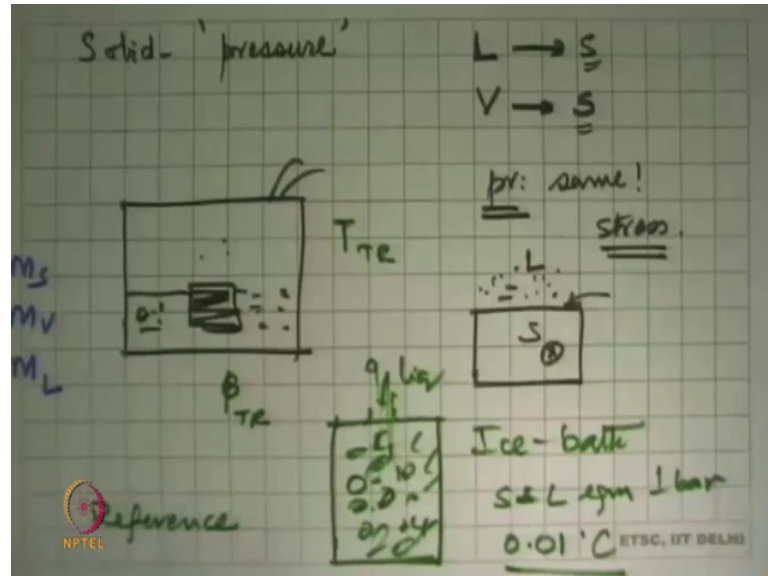 Solid- 'pressure'
L → S
V → S
pr: same!
stress.
T TR
M S
M V
M L
L
S
P TR
liq
Ice-bath
S & L eqm 1 bar
0.01 °C
Reference
NPTEL
ETSC, IIT DELHI